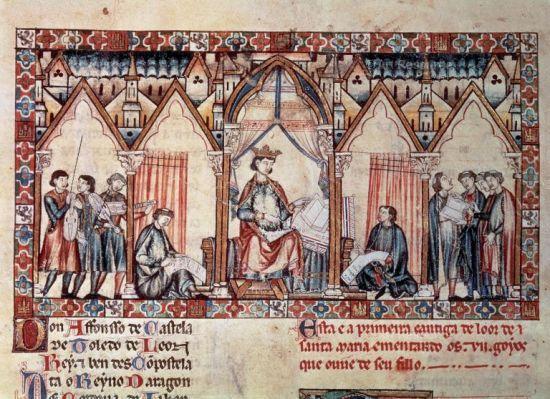 Don Affonsso de Castela
de Toledo de Leon
Rey ⁊ ben des Cõpostela
Ta o Reyno Daragon
Esta e a primeira cantiga de loor de
santa maria ementando os .vii. goyos
que ouue de seu fillo.